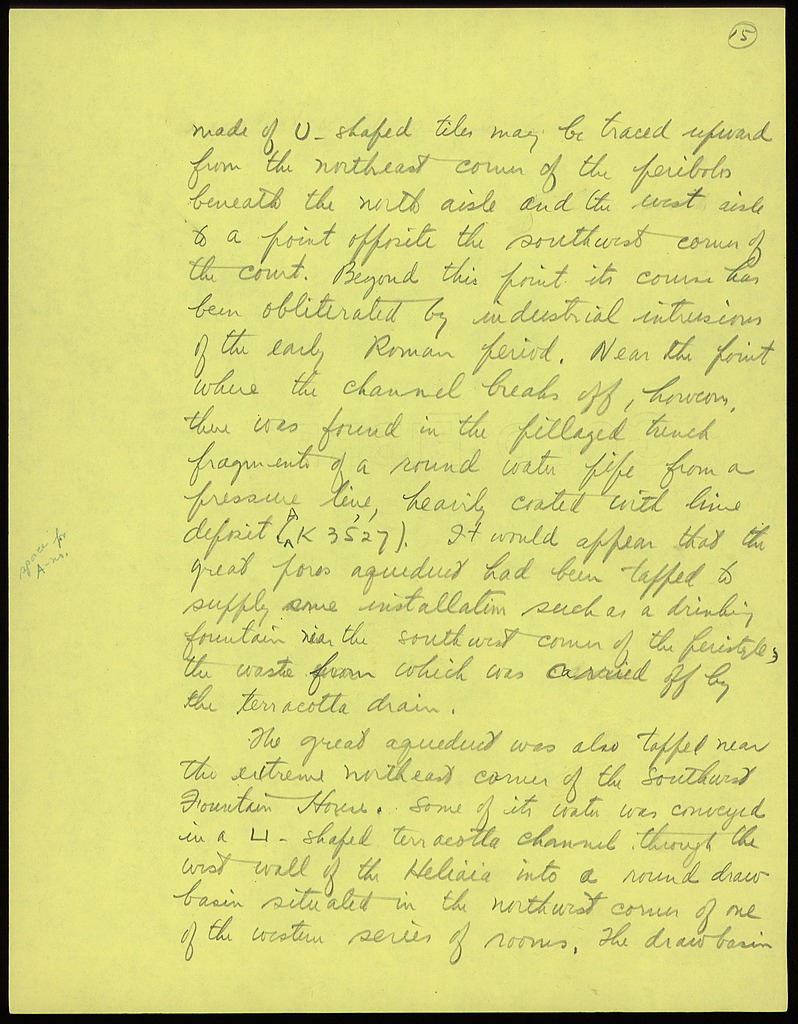 15
made of U-shaped tiles may be traced upward
from the northeast corner of the peribolos
beneath the north aisle and the west aisle
to a point opposite the southwest corner of
the court. Beyond this point its course has
been obliterated by industrial intrusions
of the early Roman period. Near the point
where the channel breaks off, however,
there was found in the pillaged trench
fragments of a round water pipe from a
pressure line, heavily coated with lime
deposit (A K 3527). It would appear that the
space for
A-nos.
great poros aqueduct had been tapped to
supply some installation such as a drinking
fountain near the southwest corner of the peristyle,
the waste from which was carried off by
the terracotta drain.
The great aqueduct was also tapped near
the extreme northeast corner of the Southwest
Fountain House. Some of its water was conveyed
in a U-shaped terracotta channel through the
west wall of the Heliaia into a round draw
basin situated in the northwest corner of one
of the western series of rooms. The draw basin